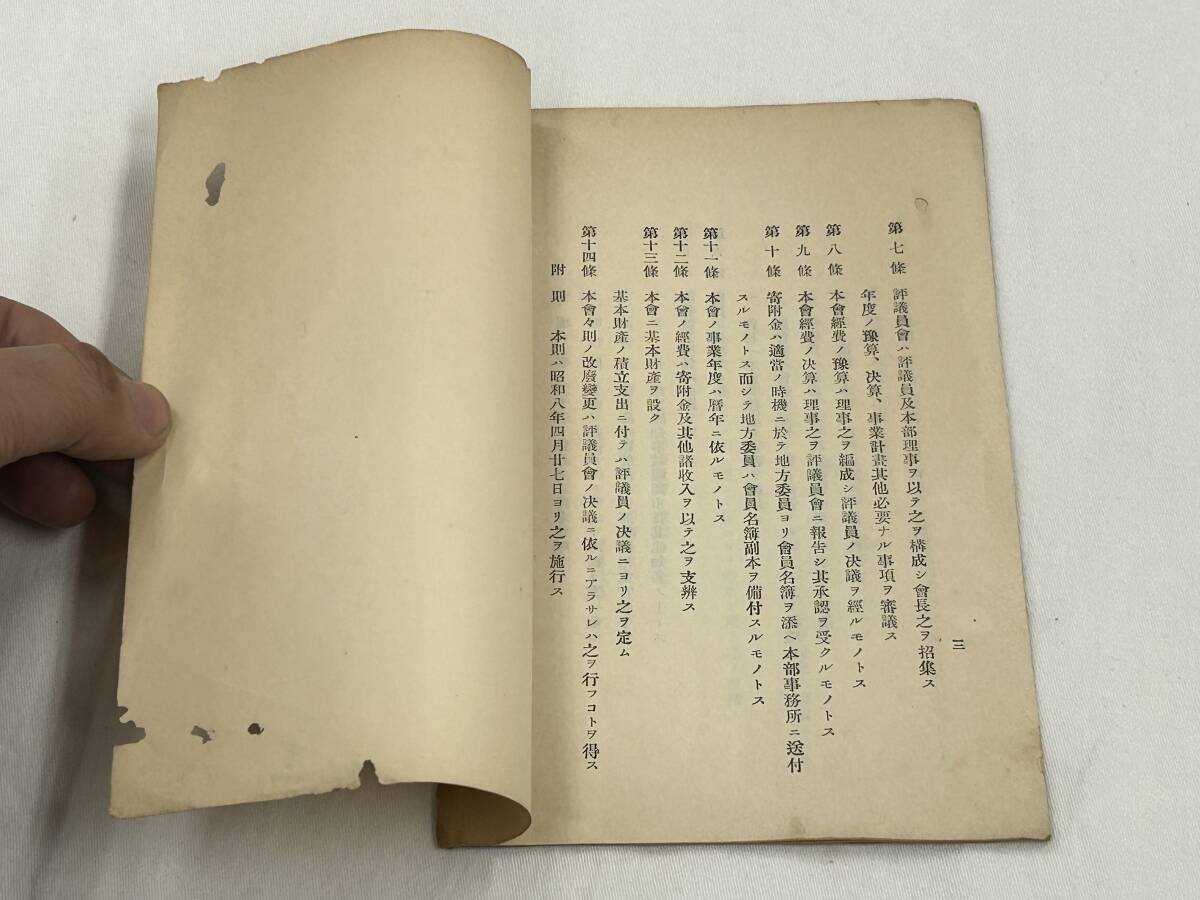 三
第七條 評議員會ハ評議員及本部理事ヲ以テ之ヲ構成シ會長之ヲ招集ス
年度ノ豫算、決算、事業計畫其他必要ナル事項ヲ審議ス
第八條 本會經費ノ豫算ハ理事之ヲ編成シ評議員ノ決議ヲ經ルモノトス
第九條 本會經費ノ決算ハ理事之ヲ評議員會ニ報告シ其承認ヲ受クルモノトス
第十條 寄附金ハ適當ノ時機ニ於テ地方委員ヨリ會員名簿ヲ添ヘ本部事務所ニ送付
スルモノトス而シテ地方委員ハ會員名簿副本ヲ備付スルモノトス
第十一條 本會ノ事業年度ハ曆年ニ依ルモノトス
第十二條 本會ノ經費ハ寄附金及其他諸收入ヲ以テ之ヲ支辨ス
第十三條 本會ニ基本財產ヲ設ク
基本財產ノ積立支出ニ付テハ評議員ノ決議ニヨリ之ヲ定ム
第十四條 本會々則ノ改廢變更ハ評議員會ノ決議ニ依ルニアラサレハ之ヲ行フコトヲ得ス
附則 本則ハ昭和八年四月廿七日ヨリ之ヲ施行ス